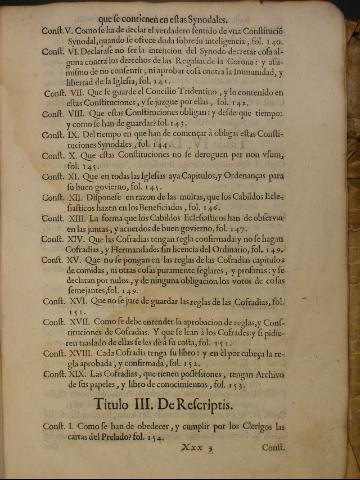 que se contienen en estas Synodales.
Const. V. Como se ha de declar el verdadero sentido de vna Constitució
Synodal, quando se ofrece duda sobre su inteligencia, fol. 140.
Const. VI. Declarase no ser la intencion del Synodo decretar cosa al-
guna contra los derechos de las Regalias de la Corona: y assi-
mismo de no consentir, ni aprobar cosa contra la Immunidad, y
libertad de la Iglesia, fol. 141.
Const. VII. Que se guarde el Concilio Tridentino, y lo contenido en
estas Constituciones, y se juzgue por ellas, fol. 142.
Const. VIII. Que estas Constituciones obligan: y desde que tiempo:
y como se han de guardar? fol. 143.
Const. IX. Del tiempo en que han de començar à obligar estas Consti-
tuciones Synodales, fol. 144.
Const. X. Que estas Constituciones no se deroguen per non vsum,
fol. 145.
Const. XI. Que en todas las Iglesias aya Capitulos, y Ordenanças para
su buen govierno, fol. 145.
Const. XII. Disponese en razon de las multas, que los Cabildos Ecle-
siasticos hazen en los Beneficiados, fol. 146.
Const. XIII. La forma que los Cabildos Eclesiasticos han de observar
en las juntas, y acuerdos de buen govierno, fol. 147.
Const. XIV. Que las Cofradias tengan regla confirmada: y no se hagan
Cofradias, y Hermandades sin licencia del Ordinario, fol. 149.
Const. XV. Que no se pongan en las reglas de las Cofradias capitulos
de comidas, ni otras cosas puramente seglares, y profanas: y se
declaran por nulos, y de ninguna obligacion los votos de cosas
semejantes, fol. 149.
Const. XVI. Que no se jure de guardar las reglas de las Cofradias, fol.
151.
Const. XVII. Como se debe entender la aprobacion de reglas, y Cons-
tituciones de Cofradias. Y que se lean à los Cofrades: y si pidie-
ren traslado de ellas se les dè à su costa, fol. 151.
Const. XVIII. Cada Cofradia tenga su libro: y en él por cabeça la re-
gla aprobada, y confirmada, fol. 152.
Const. XIX. Las Cofradias, que tienen possessiones, tengan Archivo
de sus papeles, y libro de conocimientos, fol. 153.
Titulo III. De Rescriptis.
Const. I. Como se han de obedecer, y cumplir por los Clerigos las
cartas del Prelado? fol. 154.
Xxx 3 Const.